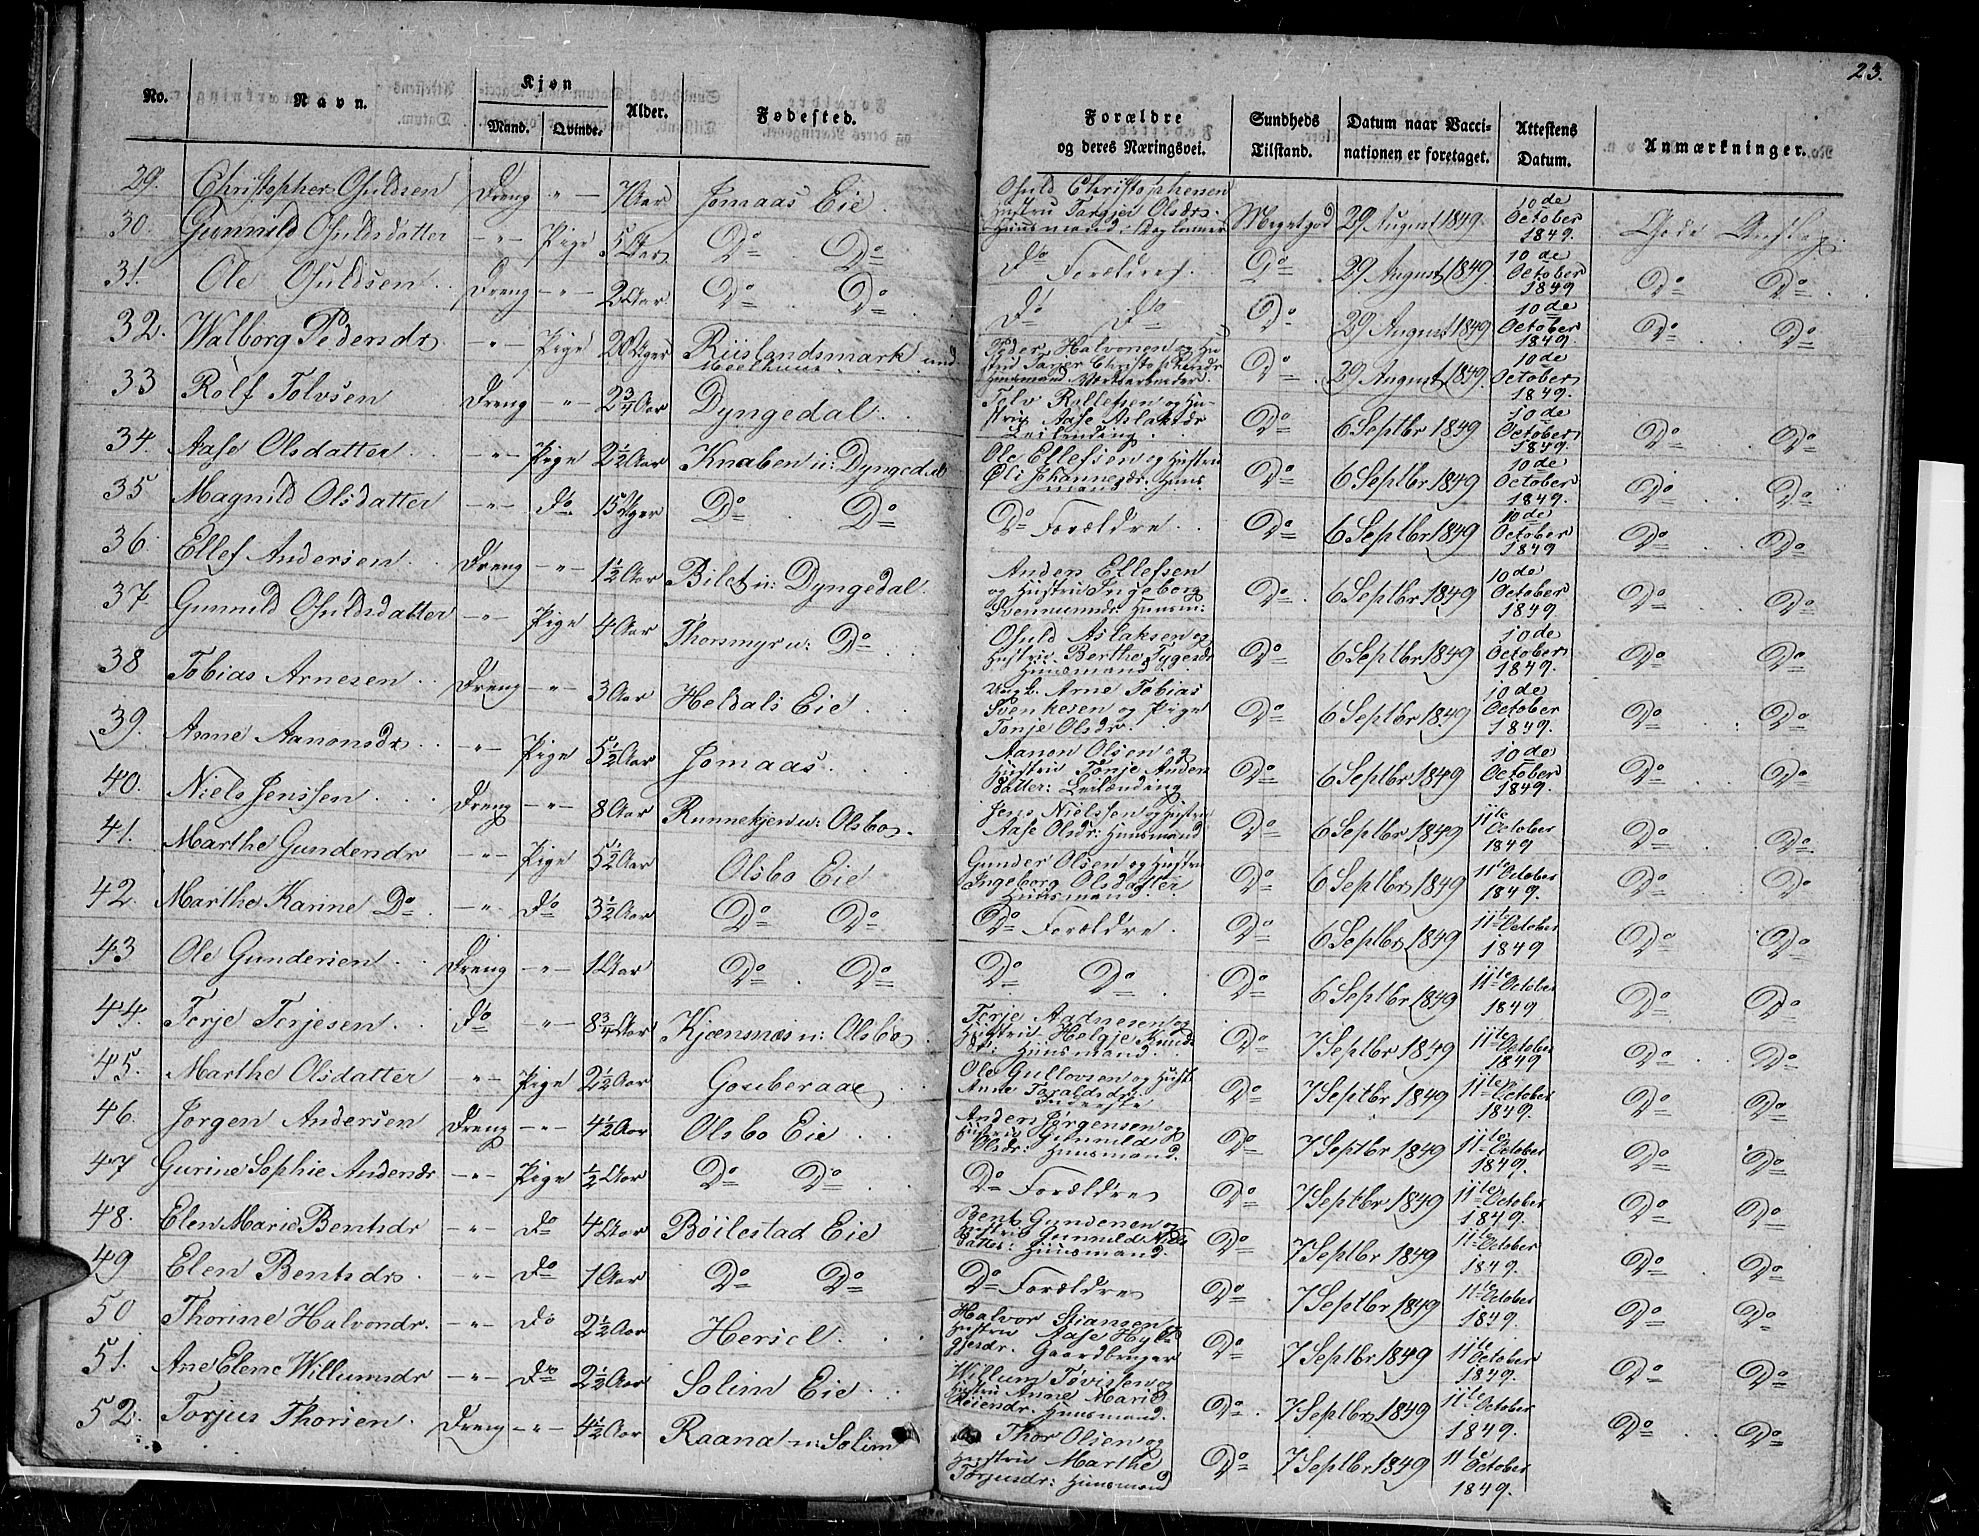 23.
No. Navn. Kjøn Mand. Qvinde. Alder. Fødested. Forældre og deres Næringsvei. Sundheds Tilstand. Datum naar Vaccinationen er foretaget. Attestens Datum. Anmærkninger.
29. Christopher Osuldsen Dreng -"- 7 Aar Jomaas Eie Osuld Christophersen Hustru Targjer Olsdr. Huusmand: Daglønner Meget god 29 August 1849. 10de October 1849. Gode
30. Gunnild Osuldsdatter -"- Pige 5 Aar Do Do Do Forældre. Do 29 August 1849. 10de October 1849 Do Do
31. Ole Osuldsen Dreng -"- 2 Aar Do Do Do Do Do 29 August 1849 10de October 1849 Do Do
32. Walborg Pedersdr -"- Pige 20 Uger Riislandsmark Peder Halvorsen og Hustru Christophersdr Huusmand Do 29 August 1849. 10de October 1849.
33 Rolf Tolvsen Dreng -"- 2 3/4 Aar Dyngedal Tolv Rollefsen og Hustru Aase Aslaksdr Leilending. Do 6 Septbr 1849 10de October 1849. Do Do
34. Aase Olsdatter -"- Pige 2 1/2 Aar Knaben u: Dyngedal Ole Ellefsen og Hustru Oli Johannesdr. Huusmand Do 6 Septbr 1849 10de October 1849. Do Do
35 Magnild Olsdatter -"- Do 15 Uger Do Do Do Forældre. Do 6 Septbr 1849 10de October 1849 Do Do
36. Ellef Andersen Dreng -"- 1 1/2 Aar Bilet u: Dyngedal. Anders Ellefsen og Hustru Ingeborg Huusm: Do 6 Septbr 1849 10de October 1849. Do Do
37. Gunnild Osuldsdatter -"- Pige 4 Aar Thorsmyr u: Do Osuld Aslaksen og Hustru Berthe Tygesdr Huusmand Do 6 Septbr 1849 10de October 1849. Do Do
38 Tobias Arnesen Dreng -"- 3 Aar Heldals Eie Ungk. Arne Tobias Svenkesen og Pige Tonje Olsdr. Do 6 Septbr 1849 10de October 1849. Do Do
39. Anne Aanonsdr -"- Pige 5 1/2 Aar Jomaas. Aanon Olsen og Hustru Tonje Andersdatter: Leilænding Do 6 Septbr 1849 10de October 1849. Do Do
40. Niels Jensen Dreng -"- 8 Aar Runnekjen u: Olsbo. Jens Nielssen og Hustru Aase Olsdr: Huusmand Do 6 Septbr 1849 11te October 1849 Do Do
41. Marthe Gundersdr -"- Pige 5 1/2 Aar Olsbo Eie Gunder Olsen og Hustru Ingeborg Olsdatter Huusmand. Do 6 Septbr 1849 11te October 1849. Do Do
42. Marthe Karine Do -"- Do 3 1/2 Aar Do Do Do Forældre. Do 6 Septbr 1849 11te October 1849 Do Do
43 Ole Gundersen Dreng -"- 1 Aar Do Do Do Do Do 6 Septbr 1849 11te October 1849 Do Do
44. Terje Terjesen. Do -"- 8 3/4 Aar Kjænsmæs u: Olsbo Terje Aadnesen og Hustru Helgje Knudsdr: Huusmand. Do 7 Septbr 1849 11te October 1849 Do Do
45. Marthe Olsdatter -"- Pige 2 1/2 Aar Gouberaae Ole Gullovsen og Hust: Anne Taraldsdr Do 7 Septbr 1849 11te October 1849. Do Do
46. Jørgen Andersen Dreng -"- 4 1/2 Aar Olsbo Eie Anders Jørgensen og Hustru Gunnild Olsdr: Huusmand. Do 7 Septbr 1849 11te October 1849. Do Do
47 Gurine Sophie Andersdr -"- Pige 1/2 Aar Do Do Do Forældre Do 7 Septbr 1849 11te October 1849. Do Do
48. Elen Marie Bentsdr -"- Do 4 Aar Bøilestad Eie Bent Gundersen og Hustru Gunnild datter: Huusmand. Do 7 Septbr 1849 11te October 1849. Do Do
49 Elen Bentsdr. -"- Do 1 Aar Do Do Do Forældre Do 7 Septbr 1849 11te October 1849. Do Do
50 Thorine Halvorsdr. -"- Do 2 1/2 Aar Hersel. Halvor Stiansen Hustru Aase Gaardbruger Do 7 Septbr 1849 11te October 1849. Do Do
51. Ane Elene Willumsdr -"- Do 2 1/2 Aar Solim Eie Willum Tovissen og Hustru Anne Marie Huusmand. Do 7 Septbr 1849 11te October 1849. Do Do
52. Torjus Thorsen. Dreng -"- 4 1/2 Aar Raana u: Solim Thor Olsen og Hustru Marthe Torjusdr: Huusmand Do 7 Septbr 1849 11te October 1849.